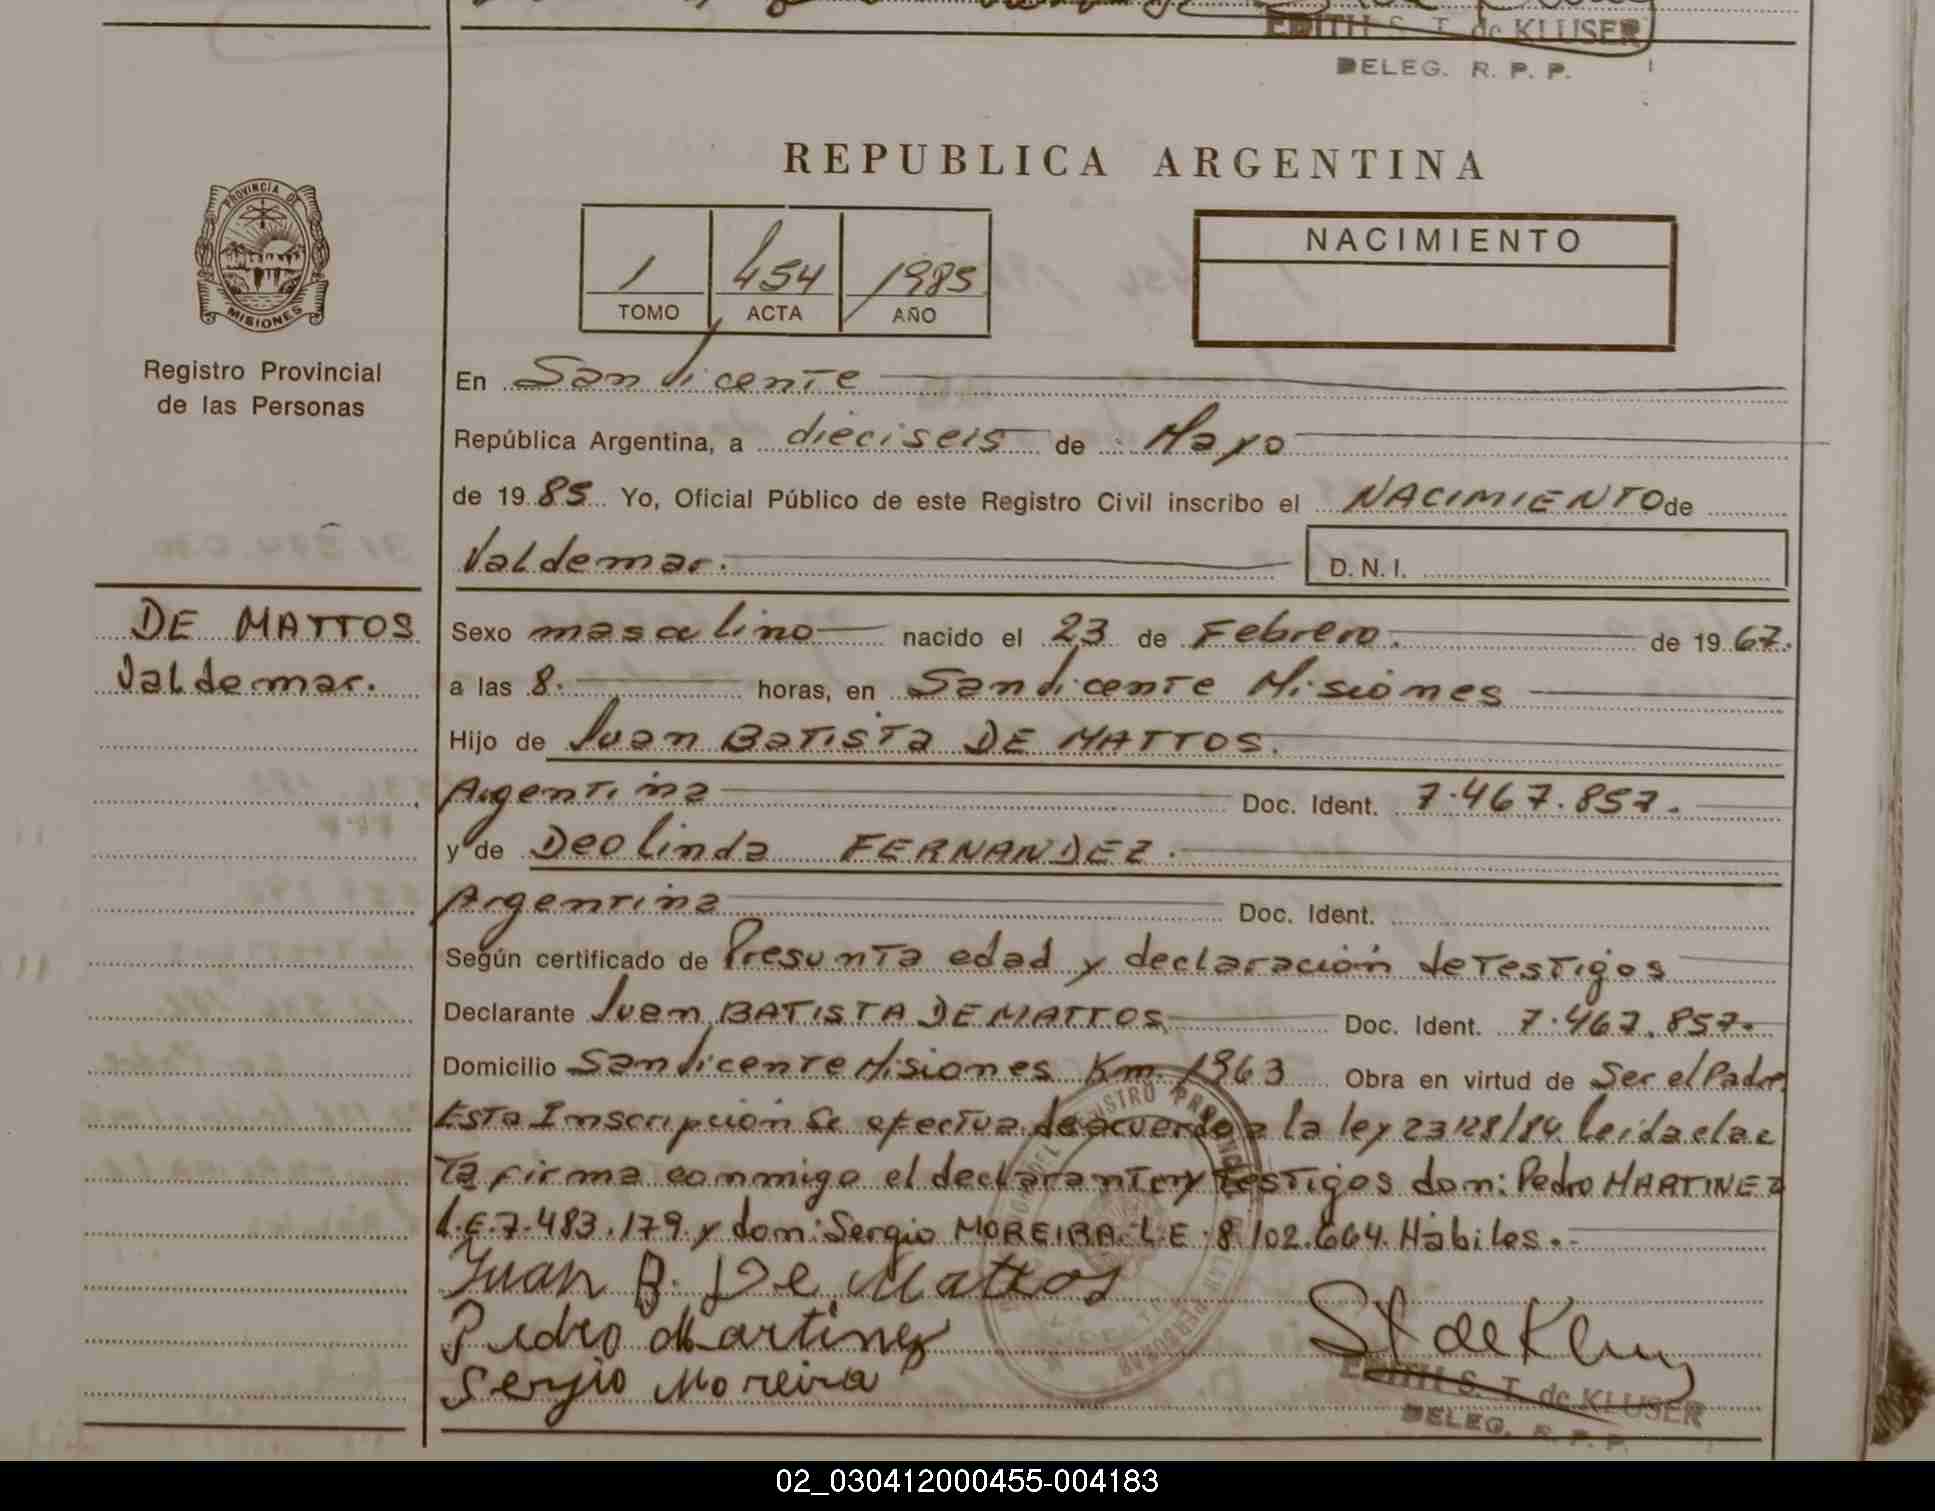 EDITH S. T. de KLUSER
DELEG. R. P. P.
REPUBLICA ARGENTINA
PROVINCIA DE
MISIONES
Registro Provincial
de las Personas
1 454 1985
TOMO ACTA AÑO
NACIMIENTO
En San Vicente
República Argentina, a dieciseis de Mayo
de 1985 Yo, Oficial Público de este Registro Civil inscribo el NACIMIENTO de
Valdemar.
D. N. I.
DE MATTOS
Valdemar.
Sexo masculino nacido el 23 de Febrero. de 1967.
a las 8. horas, en San Vicente Misiones
Hijo de Juan BATISTA DE MATTOS.
Argentina Doc. Ident. 7.467.857.
y de Deolinda FERNANDEZ.
Argentina Doc. Ident.
Según certificado de Presunta edad y declaración de Testigos
Declarante Juan BATISTA DE MATTOS Doc. Ident. 7.467.857.
Domicilio San Vicente Misiones Km. 1363 Obra en virtud de Ser el Padre
Esta Inscripción Se efectua deacuerdo a la ley 23128/84. leida el ac
ta firma conmigo el declarante y testigos don: Pedro MARTINEZ
L.E.7.483.179. y don: Sergio MOREIRA. L.E. 8.102.664. Hábiles.-
Juan B. De Mattos
Pedro Martinez
Sergio Moreira
St de Klu
EDITH S. T. de KLUSER
DELEG. R. P. P.
02_030412000455-004183